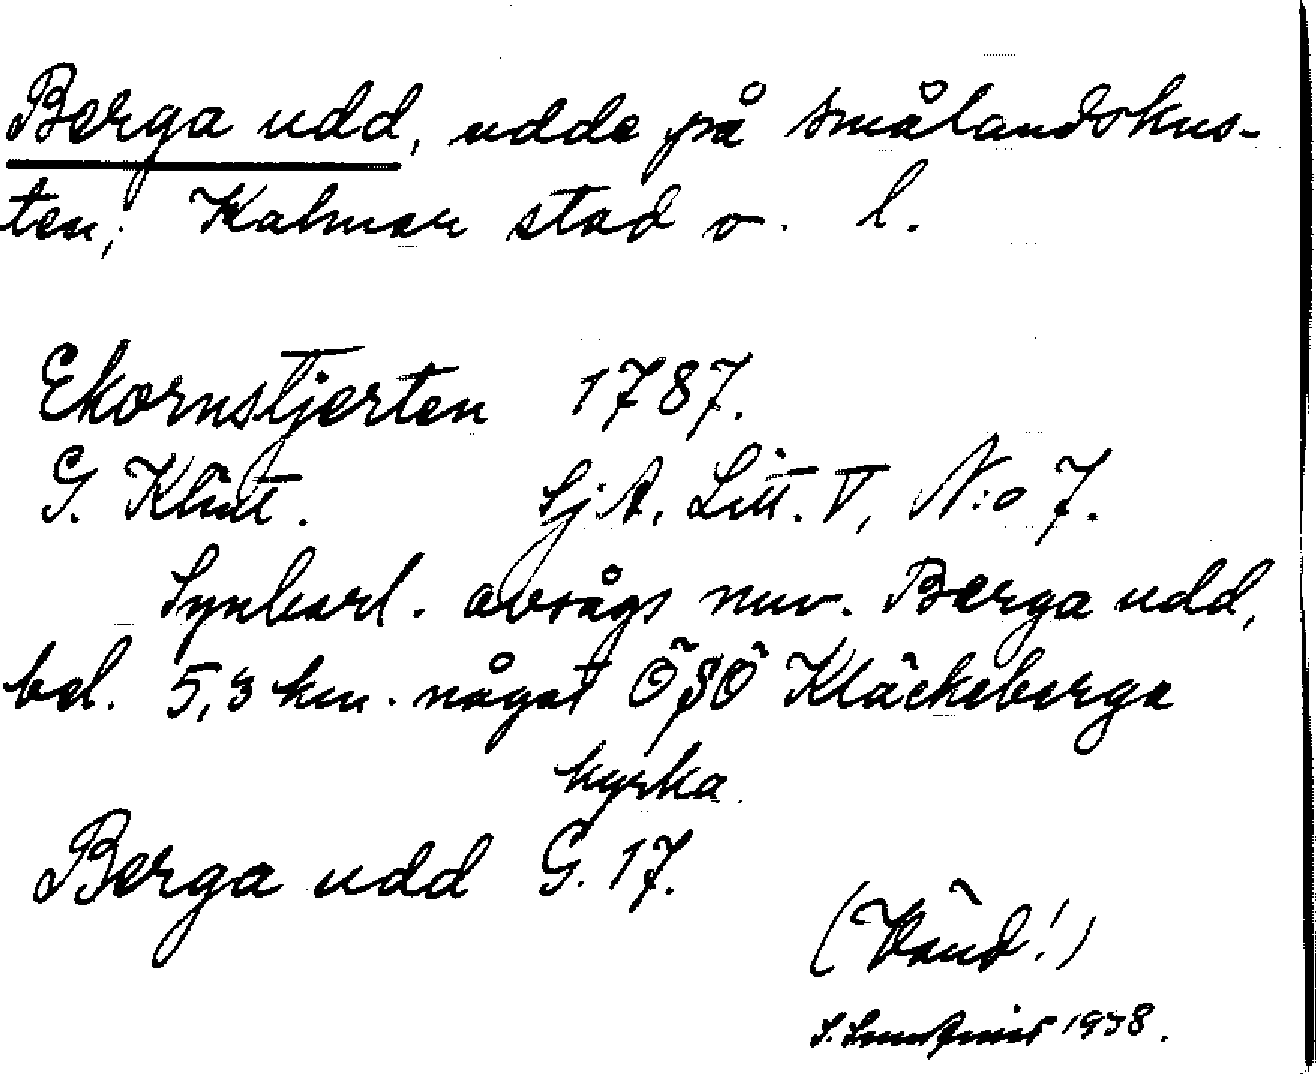 Berga udd, udde på smålandskus-
ten; Kalmar stad o. l.
Ekornstjerten 1787.
G. Klint. Sj.A. Litt. V, N:o 7.
Synbarl. avsågs nuv. Berga udd,
bel. 5,3 km. något ÖSÖ Kläckeberga
kyrka.
Berga udd G. 17.
(Vänd!)
1938.